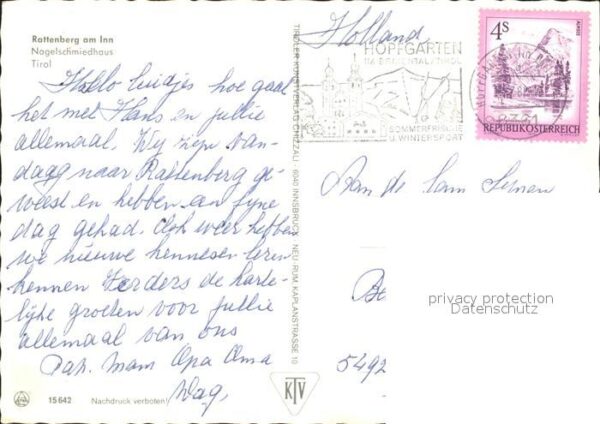 Rattenberg am Inn
Nagelschmiedhaus
Tirol
Hallo luidjes hoe gaat
het met Hans en jullie
allemaal. Wij zijn van-
dagg naar Rattenberg ge-
weest en hebben een fijne
dag gehad. Ook weer hebben
we nieuwe kennesen leren
kennen Verders de harte-
lijke groeten voor jullie
allemaal van ons
Pap. Mam Opa Oma
Dag,
15642 Nachdruck verboten
TIROLER KUNSTVERLAG CHIZZALI 6040 INNSBRUCK - NEU-RUM KAPLANSTRASSE 10
KTV
Holland
HOPFGARTEN
IM BRIXENTAL/TIROL
SOMMERFRISCHE
U. WINTERSPORT
4S
REPUBLIK ÖSTERREICH
Aan de Fam
Be
5492
privacy protection
Datenschutz